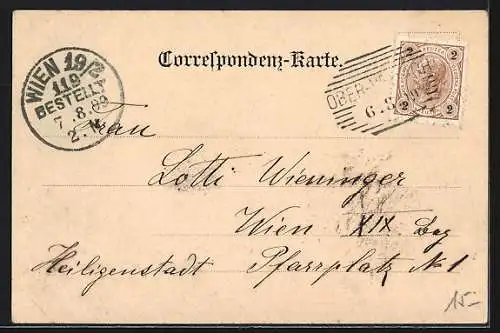 Correspondenz-Karte.
WIEN 19/2
119
BESTELLT
7. 8. 99
2. N
OBER-
6. 8
2 2
2 2
Frau
Lotti Wieninger
Wien XIX Bez
Heiligenstadt Pfarrplatz N 1
15.-